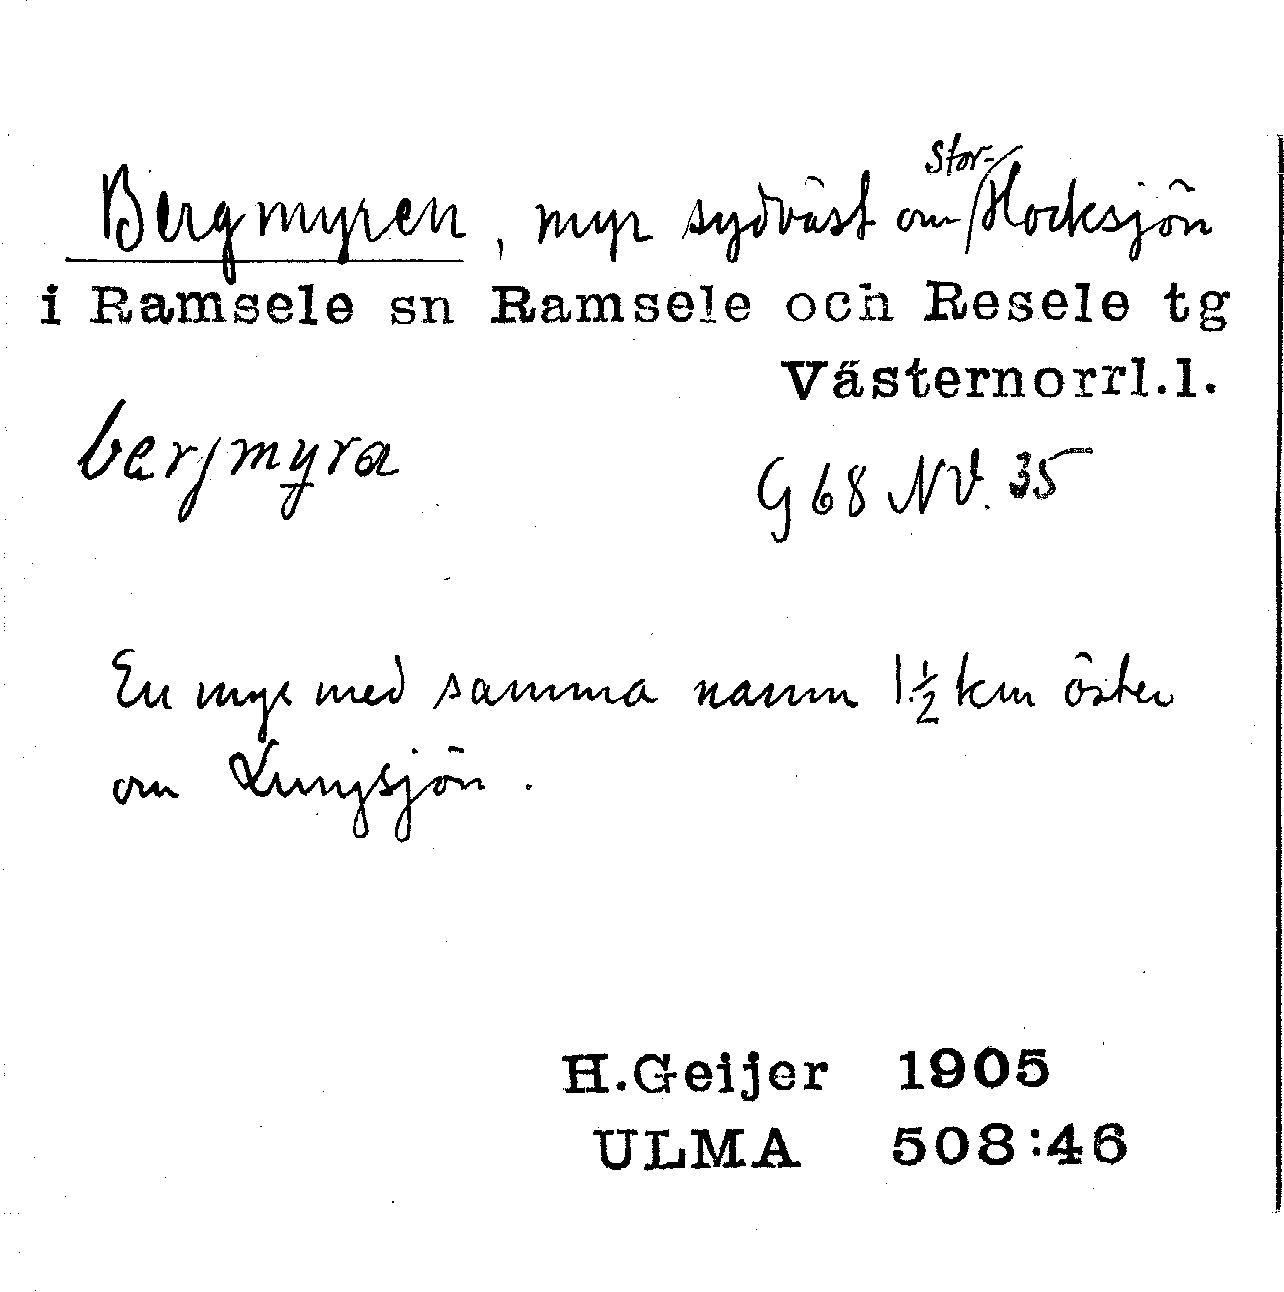 Bergmyren, myr sydväst om Stor-Hocksjön
i Ramsele sn Ramsele och Resele tg
Västernorrl.l.
berjmyra
G 68 NV. 35
En myr med samma namn 1½ km öster
om Lungsjön.
H.Geijer 1905
ULMA 508:46